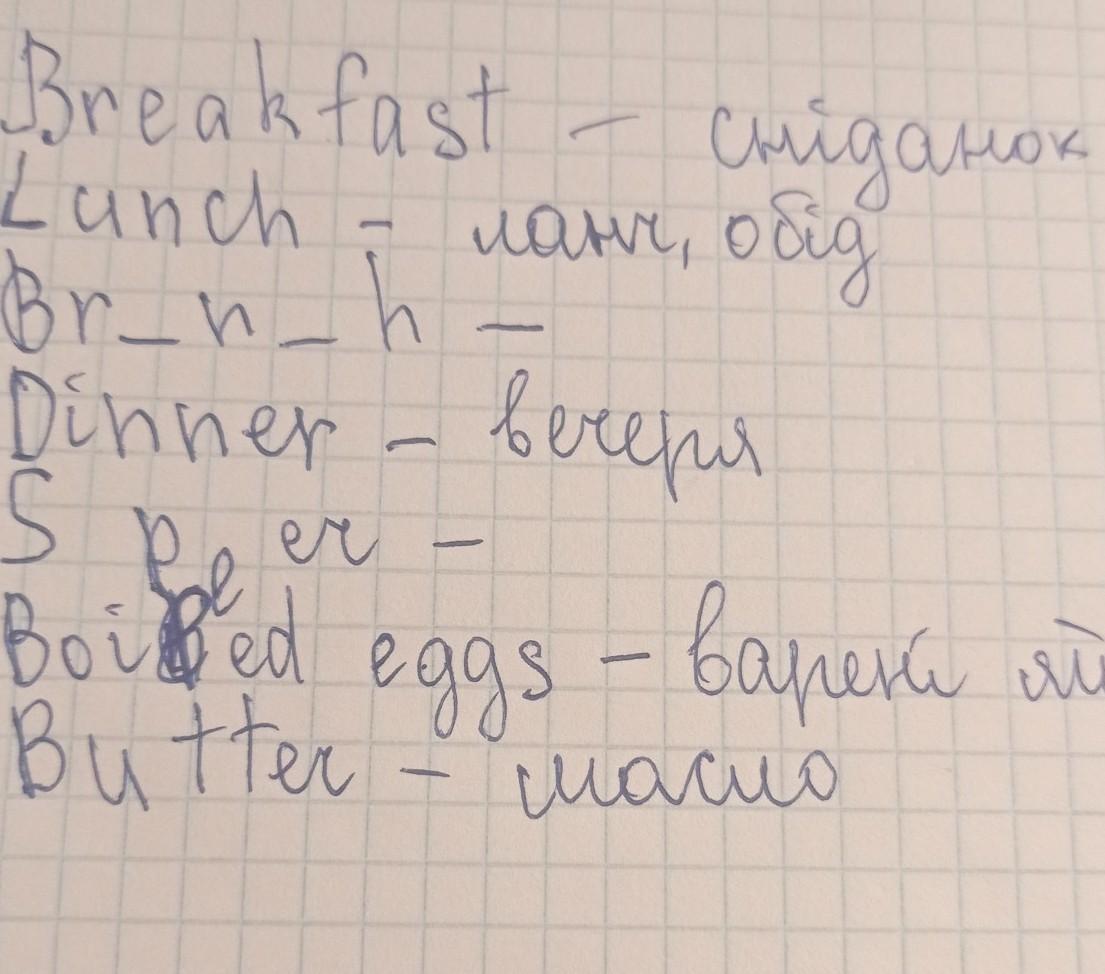 Breakfast – сніданок
Lunch – ланч, обід
Br_n_h –
Dinner – вечеря
S p er –
Boiled eggs – варені яй
Butter – масло